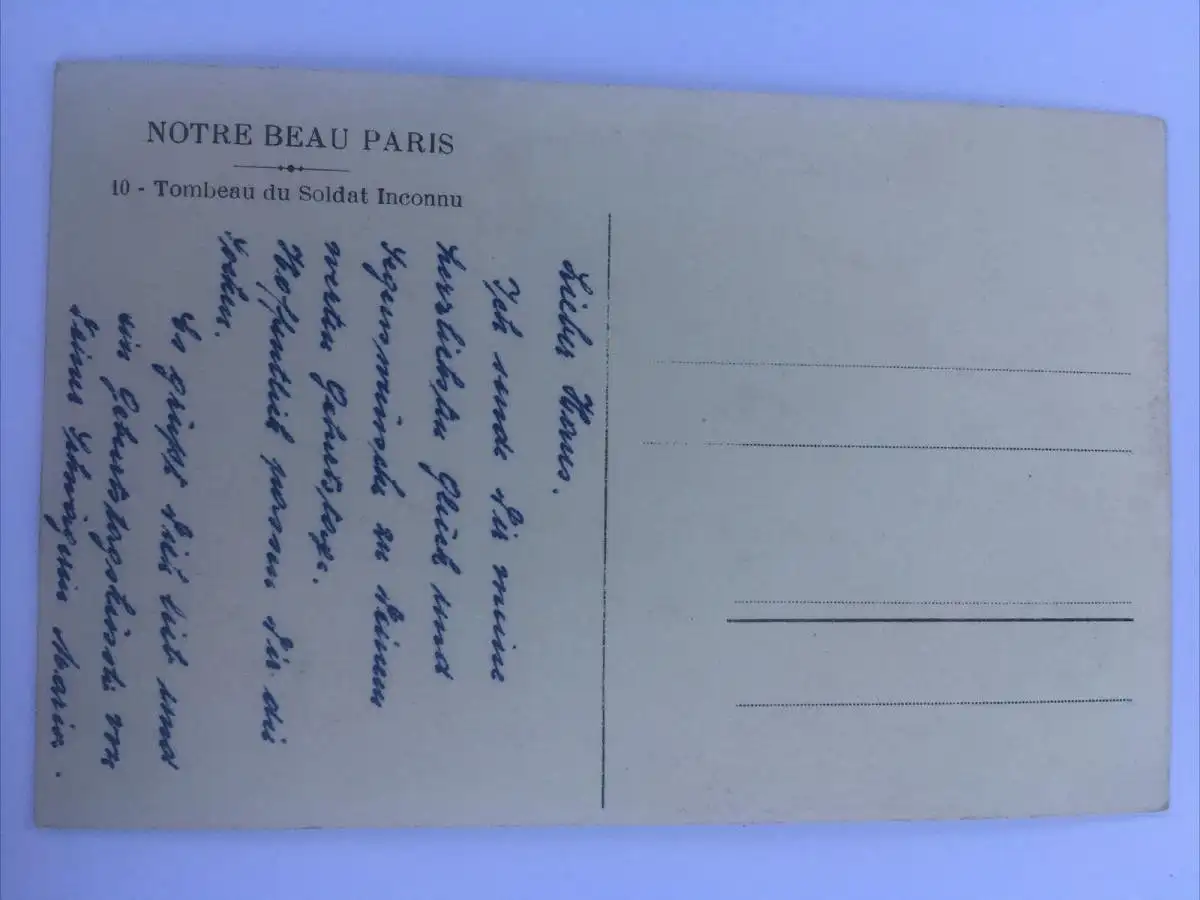 NOTRE BEAU PARIS
10 - Tombeau du Soldat Inconnu
Lieber Hans.
Ich sende Dir meine
herzlichsten Glück und
Segenswünsche zu Deinem
werten Geburtstage.
Hoffentlich passen Dir die
Socken.
Es grüsst Dich lieb und
ein Geburtstagsküssti von
Deiner Schwägerin Maria.